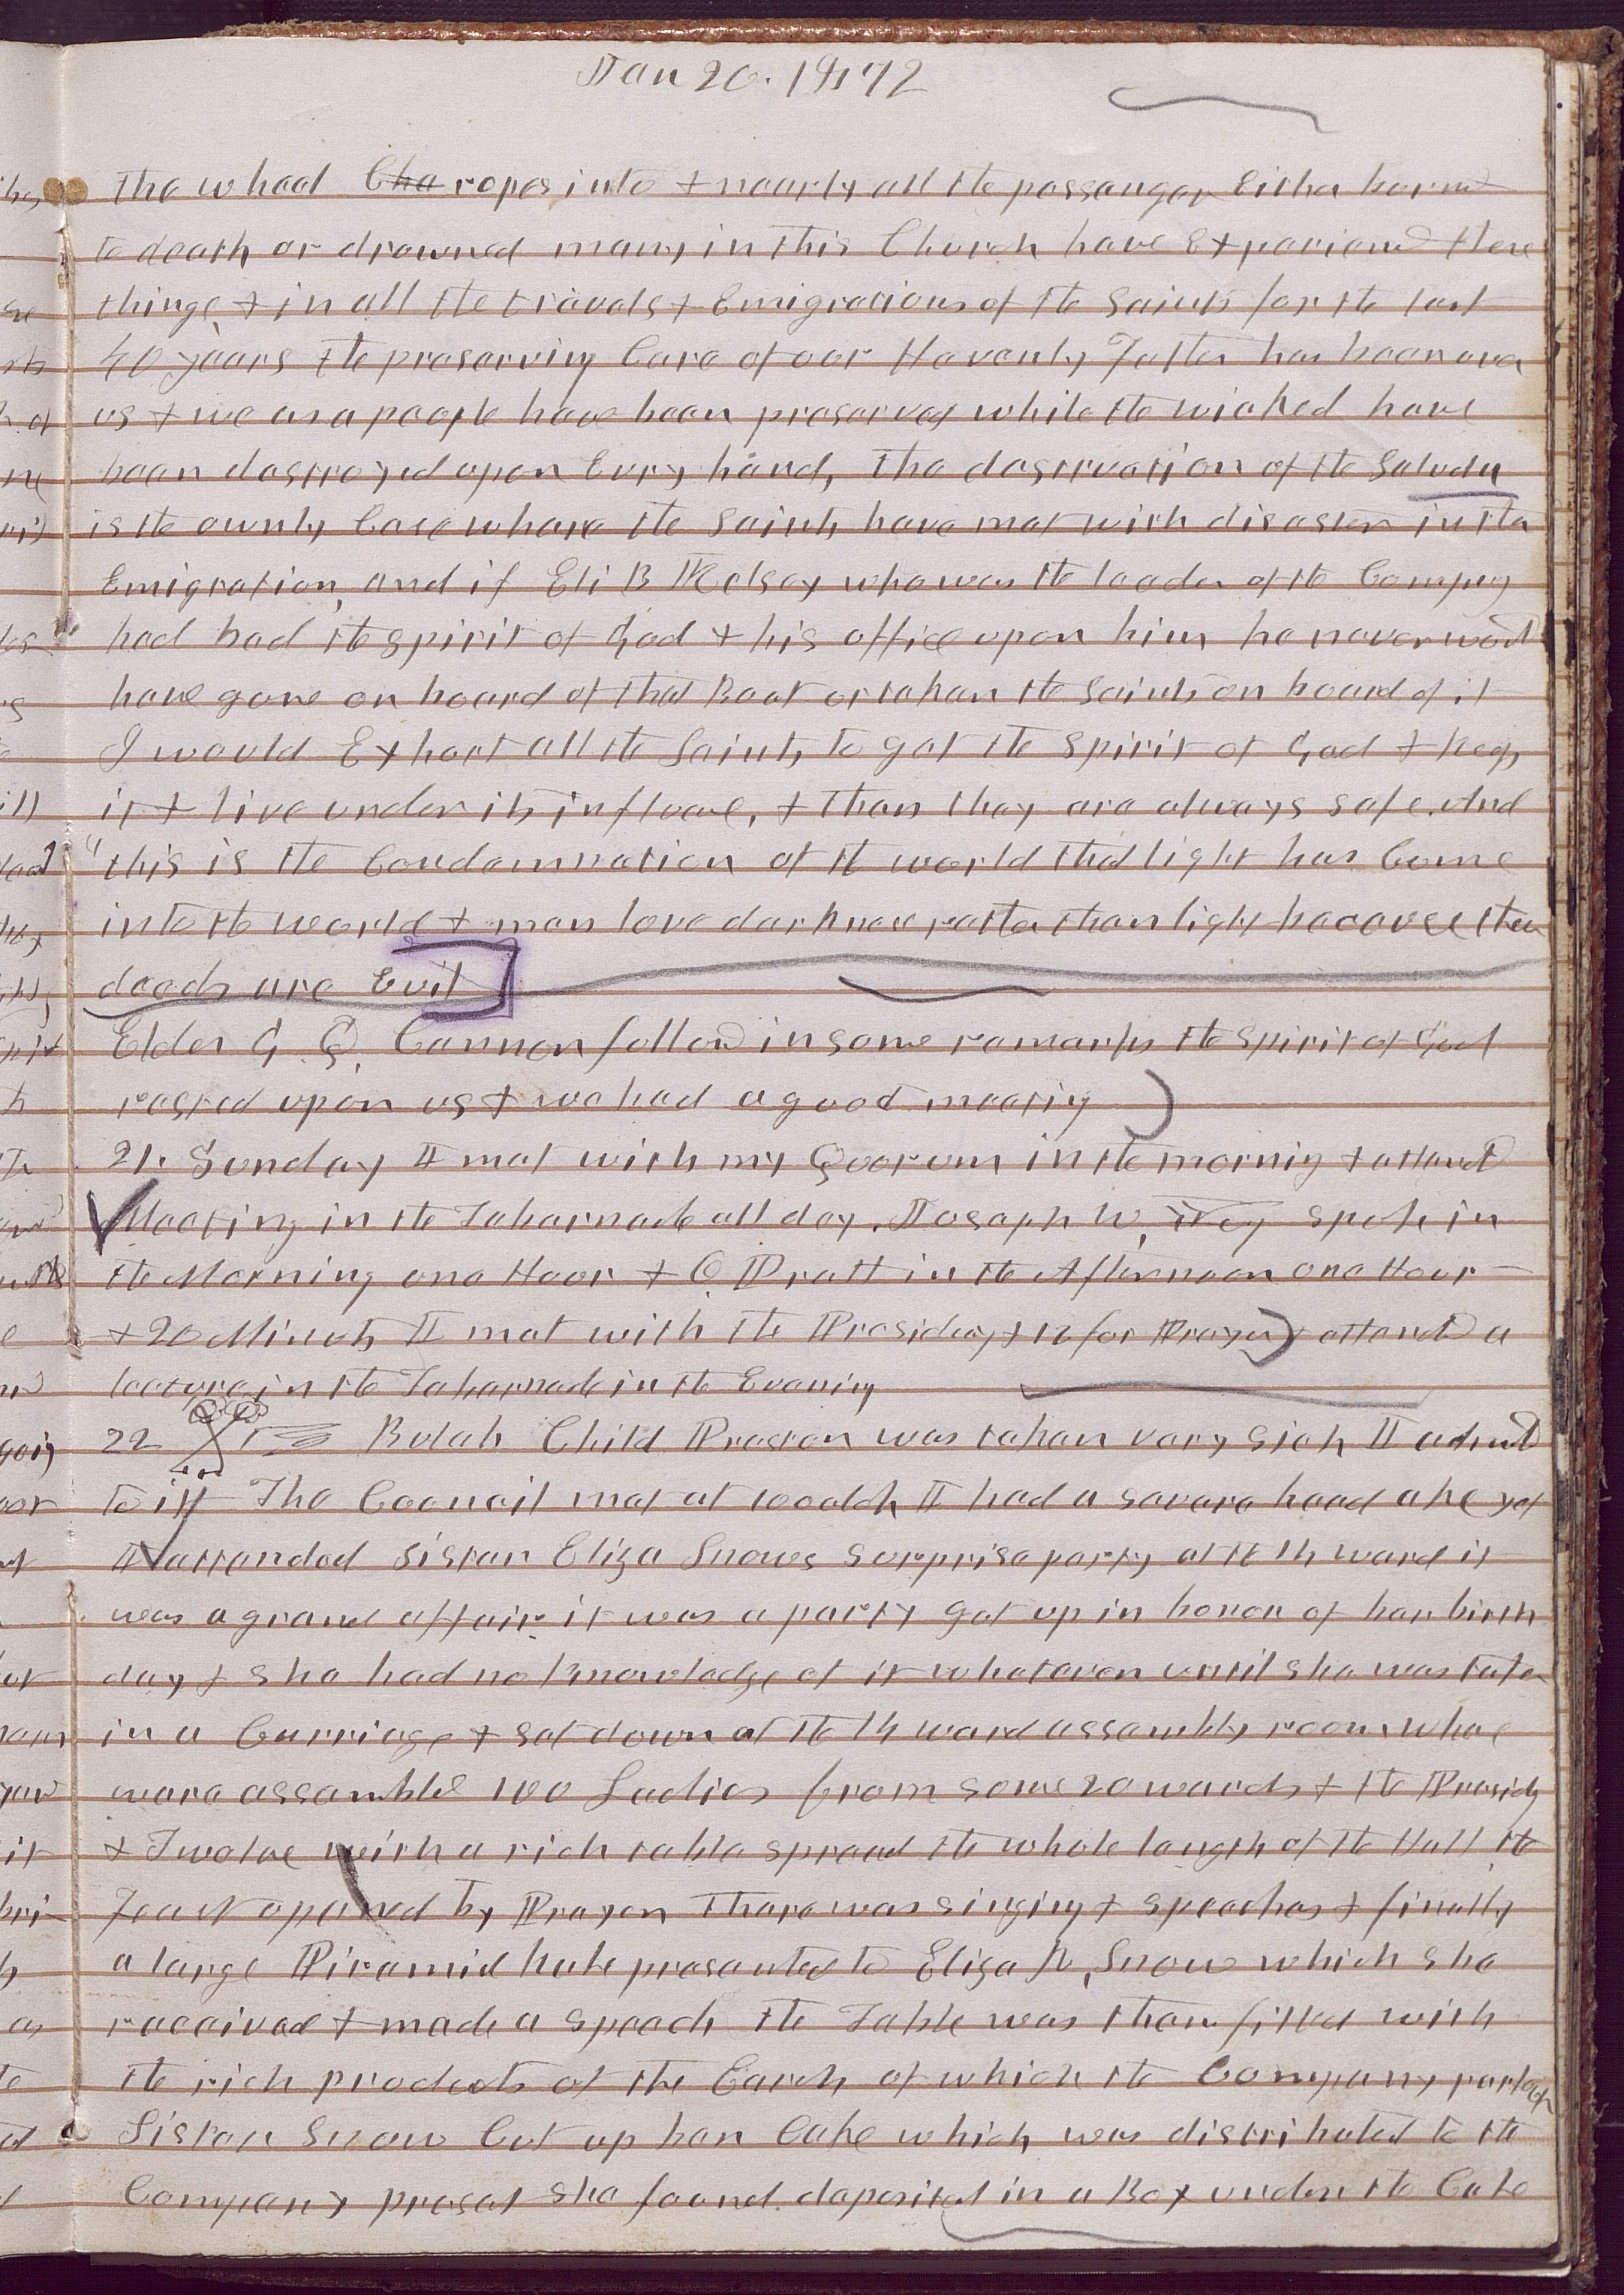 Jan 20. 1872
the wheel Cha ropes into & nearly all the passanger Either burnd
to death or drowned many in this Church have Experiencd these
things & in all the travels & Emigrations of the Saints for the last
40 years the preserving Care of our Havenly Father has been over
us & we as a people have been preserved while the wicked have
been destroyed upon Evry hand, The destruction of the Saluda
is the ownly Case whare the Saints have met with disaster in the
Emigration, and if Eli B Kelsey who was the leader of the Compny
had had the spirit of God & his office upon him he never would
have gone on board of that Boat or taken the Saints on board of it
I would Exhort all the Saints to get the spirit of God & keep
it & live under its influence, & then they are always safe. And
"this is the Condemnation of the world that light has Come
into the world & men love darkness rather than light because their
deeds are Evil
Elder G. Q. Cannon followd in some remarks the spirit of God
rested upon us & we had a good meeting
21. Sunday I met with my Quorum in the mornig & attend
Meeting in the Tabernacle all day. Joseph W, spoke in
the Morning one Hour & O Pratt in the Afternoon one Hour
& 20 Minuts I met with the Presidecy & 12 for Prayer & attend a
lecture in the Tabernacle in the Evening
22 Bulah Child Preston was taken very sick I admd
to it The Council met at 10 oclok I had a severe head ake yet
I attended Sister Eliza Snows surprise party at the 14 ward it
was a grand affair it was a party got up in honor of her birth
day & she had no knowledge of it whatever until she was taken
in a Carriage & set down at the 14 ward assembly room whare
ware assembled 100 Ladies from some 20 wards & the Presidy
& Twelve with a rich table spread the whole length of the Hall the
Feast opened by Prayer Thare was singing & speeches & finally
a large Piramid kake presented to Eliza R, Snow which she
received & made a speech the Table was then filled with
the rich products of the Earth of which the Company partook
Sister Snow Cut up her Cake which was distributed to the
Company presat She found deposited in a Box under the Cake